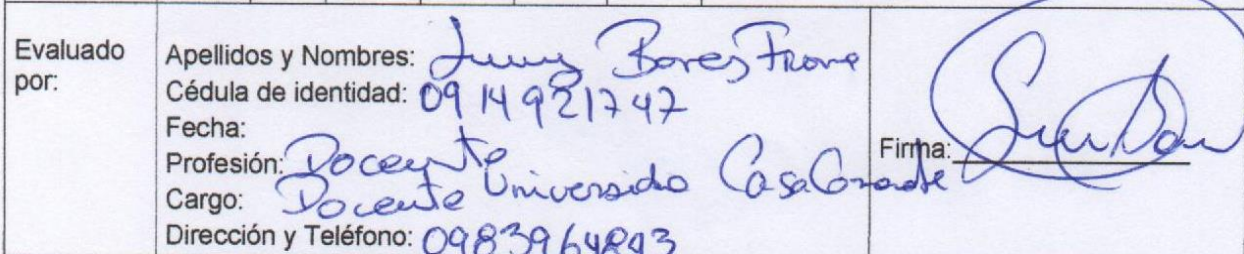 Evaluado por:
Apellidos y Nombres: Bores
Cédula de identidad: 0914921747
Fecha:
Profesión: Docente
Cargo: Docente Universida Casa Grande
Dirección y Teléfono:
Firma: